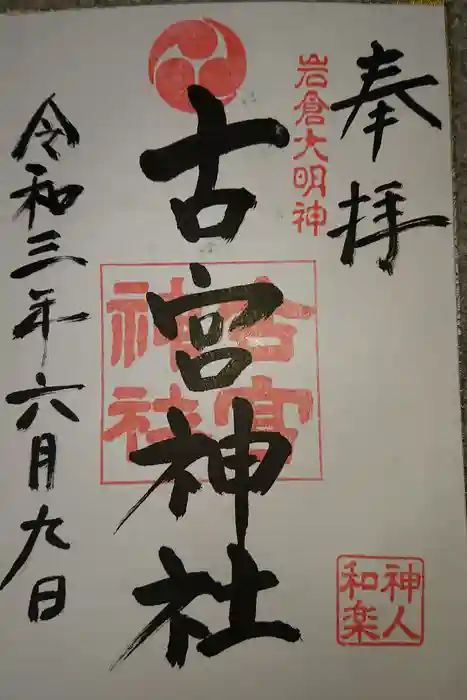 奉拝
岩倉大明神
古宮神社
古宮神社
神人和楽
令和三年六月九日